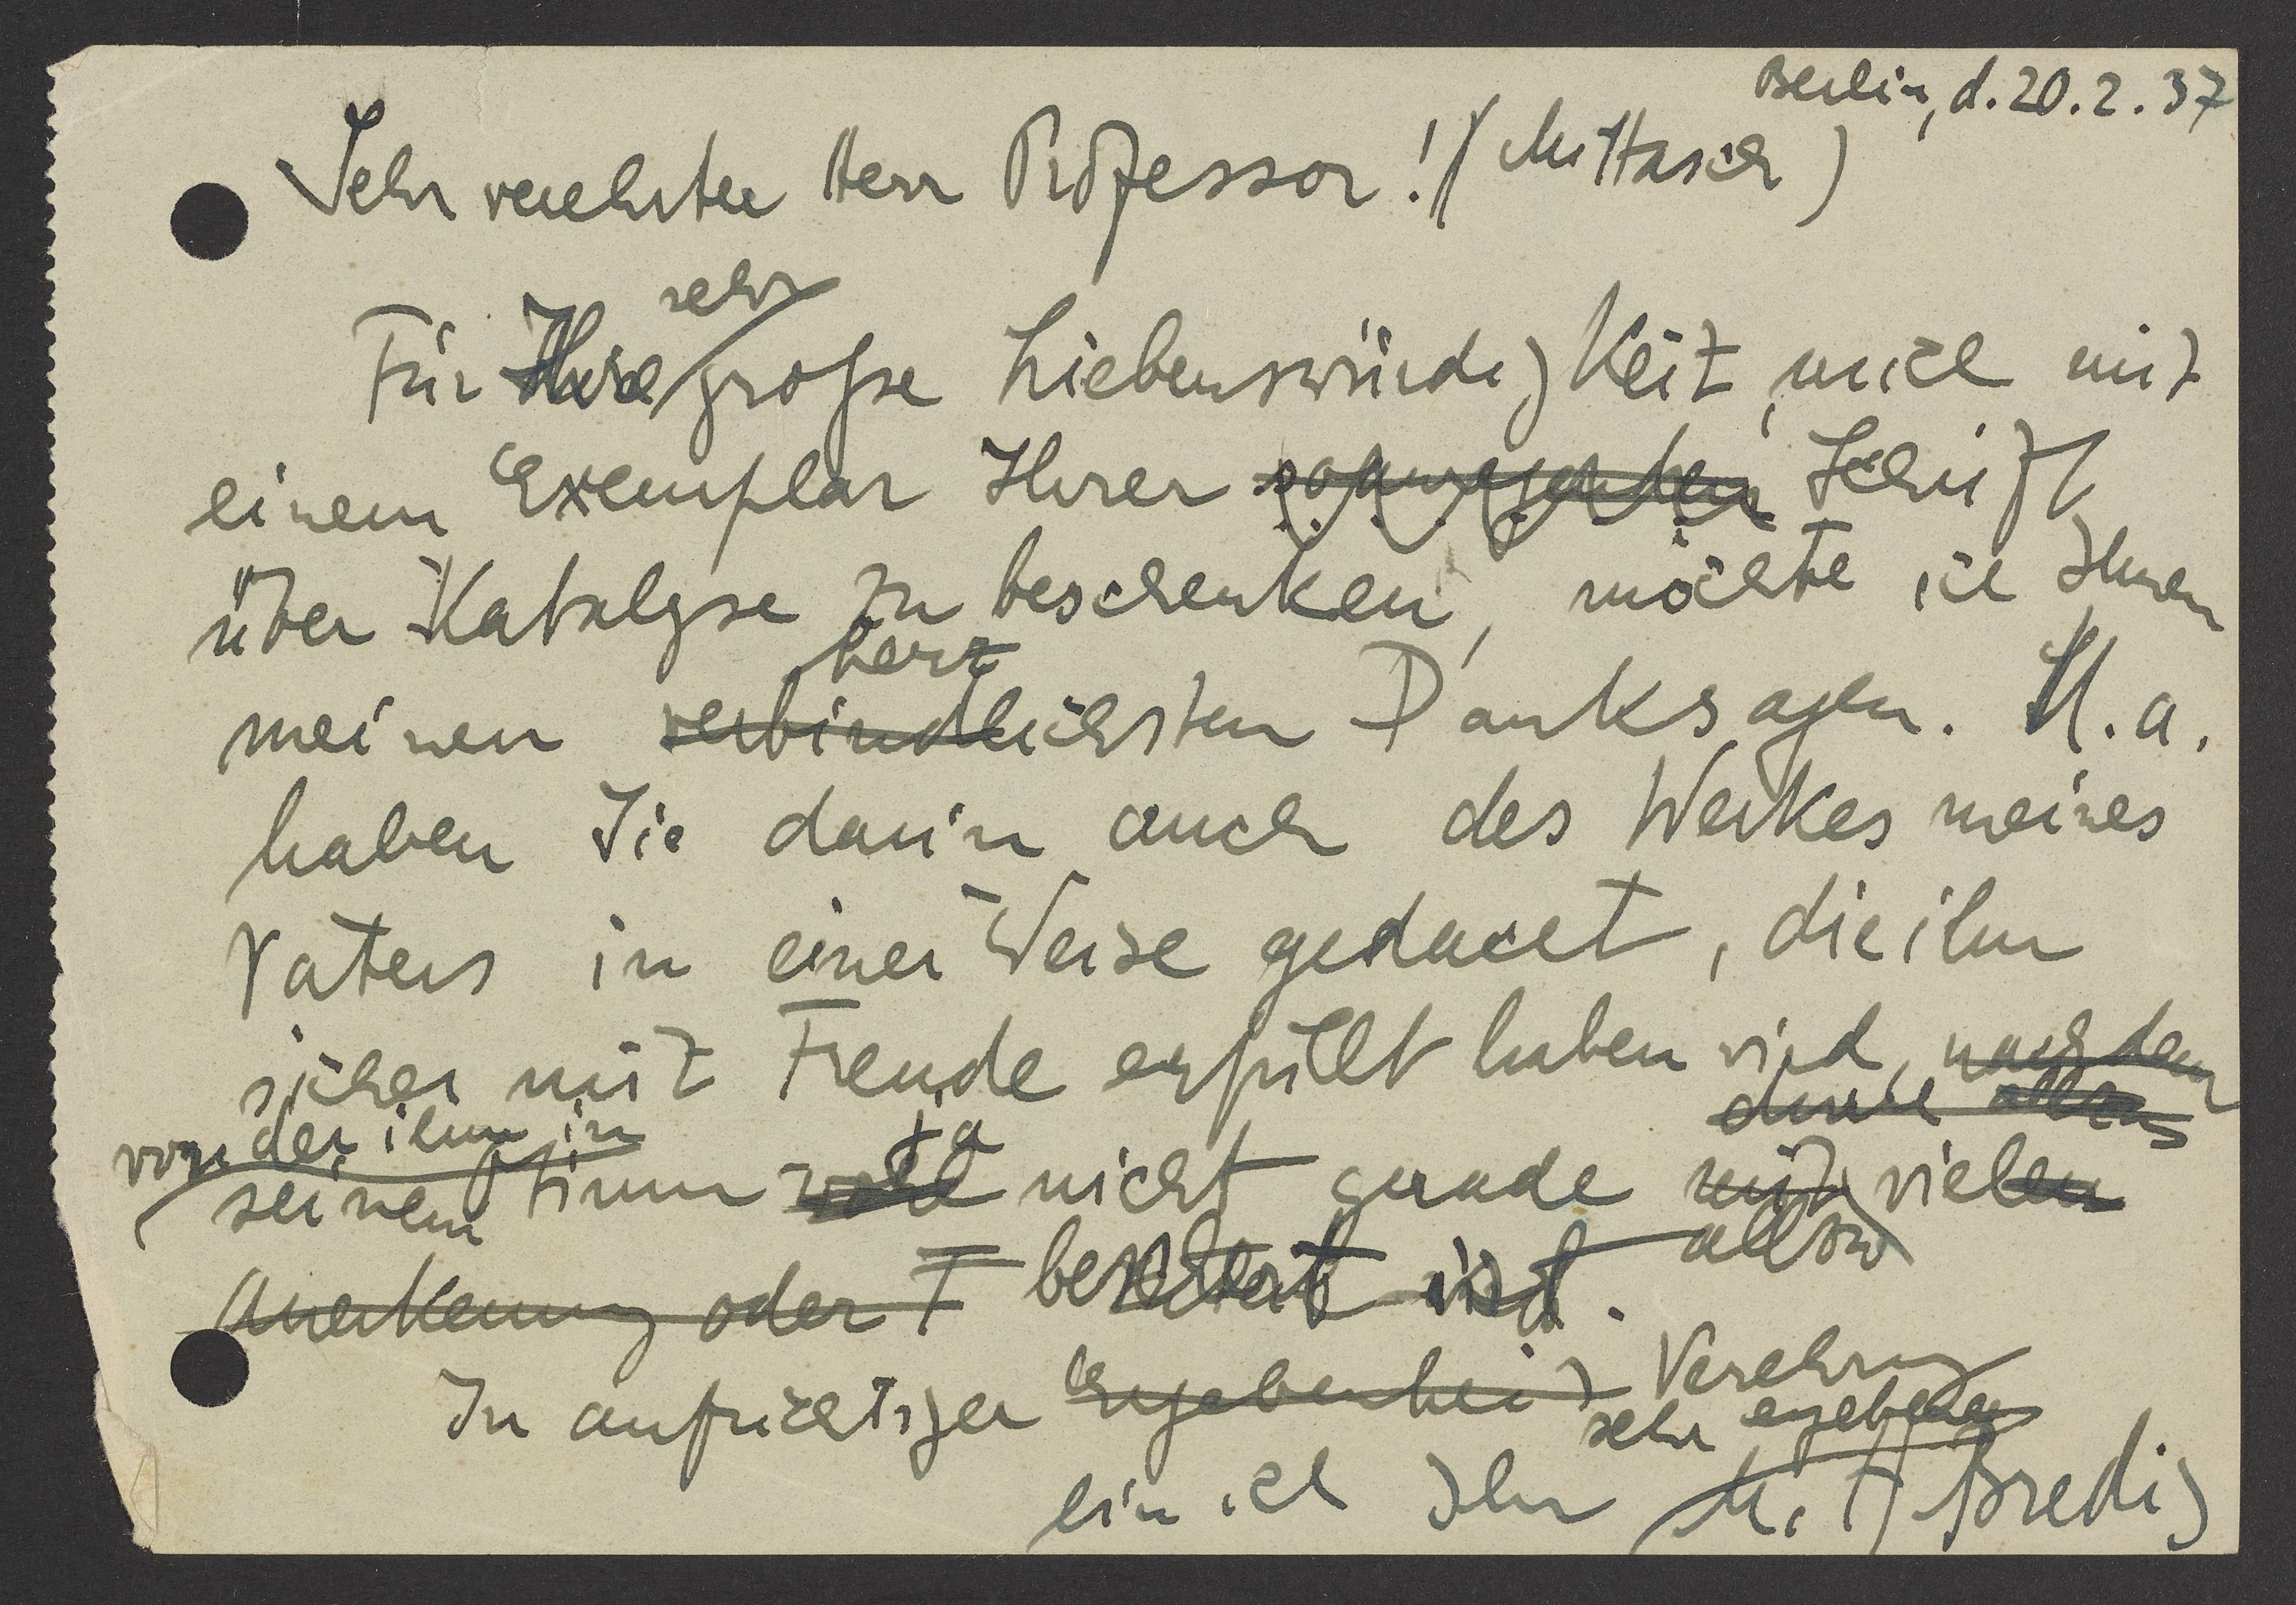 Berlin, d. 20.2.37
Sehr verehrter Herr Professor! (Mittasch)
sehr
Für Ihre große Liebenswürdigkeit, mich mit
einem Exemplar Ihrer Schrift
über Katalyse zu beschenken, möchte ich Ihnen
herz
meinen verbindlichsten Dank sagen. U. a.
haben Sie darin auch des Werkes meines
Vaters in einer Weise gedacht, die ihn
sicher mit Freude erfüllt haben wird, nachdem
durch alles
von der ihm in ja
seinem nicht gerade mit vielen
allzu
Anerkennung oder F ist.
In aufrichtiger Ergebenheit Verehrung
sehr ergebener
bin ich Ihr M. A. Bredig